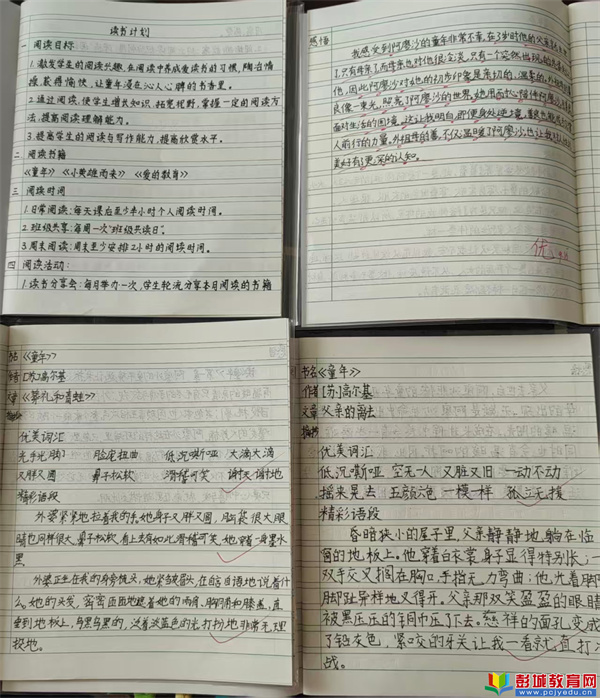 读书计划
一 阅读目标:
1.激发学生的阅读兴趣,在阅读中养成爱读书的习惯,陶冶情
操,获得愉快,让童年浸在沁人心脾的书香里。
2.通过阅读,使学生增长知识,拓宽视野,掌握一定的阅读方
法,提高阅读理解能力。
3.提高学生的阅读与写作能力,提高欣赏水平。
二 阅读书籍
《童年》 《小英雄雨来》 《爱的教育》
三 阅读时间
1.日常阅读:每天课后至少半小时个人阅读时间。
2.班级共享:每周一次"班级共读日"。
3.周末阅读:周末至少安排2小时的阅读时间。
四 阅读活动:
1.读书分享会:每月举办一次,学生轮流分享本月阅读的书籍
感悟
我感受到阿廖沙的童年非常不幸,在了3岁时他的父亲
了,只有母亲了,而母亲也对他很冷淡,只有一个突然出现的
他,因此阿廖沙对她的初步印象是亲切的,温柔的,
良像一束光,照亮了阿廖沙的世界,她用
面对生活的困境,这让我明白,即便身处逆境,
人前行的力量,外祖母的善,不仅温暖了阿廖沙,也让我
美好有了更深的认知。
优
《童年》
[苏]高尔基
《葬礼和青蛙》
优美词汇
光手光脚 脸庞扭曲 低沉嘶哑 大滴大滴
又胖又圆 鼻子松软 滑稽可笑 谢天谢地
精彩语段
外婆紧紧地拉着我的手,她身子又胖又圆,脑袋很大眼
睛也同样很大,鼻子松软,看上去有如此滑稽可笑,她穿着一身墨水
黑
外婆正坐在我的身旁梳头,她紧皱眉头,在自言自语地说着什
么。她的头发,密密匝匝地遮着她的两肩、胸脯和膝盖,直
垂到地板上,乌黑乌黑的,泛着淡蓝色的光,打扮地非常无理
投地。
书名《童年》
作者[苏]高尔基
文章 父亲的离去
摘抄
优美词汇
低沉嘶哑 空无一人 又脏又旧 一动不动
摇来晃去 五颜六色 一模一样 孤立无援
精彩语段
昏暗狭小的屋子里,父亲静静地,躺在临
窗的地板上。他穿着白衣裳身子显得特别长;
双手交叉搁在胸口,手指无力弯曲;他光着脚
脚趾异样地又得开。父亲那双笑盈盈的眼睛
被黑压压的铜币压了下去。慈祥的面孔变成
了铅灰色,紧咬的牙关让我一看就直打
战。
彭城教育网
www.pcjyzx.com